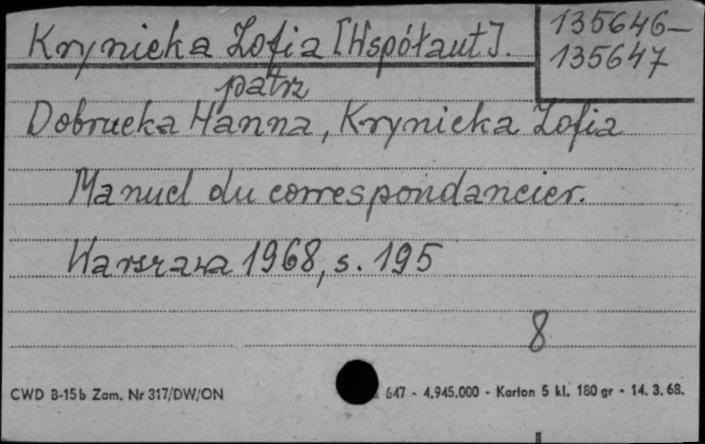 Krynicka Zofia [Współaut].
135646-
135647
patrz
Dobrucka Hanna, Krynicka Zofia
Manuel du correspondancier.
Warszawa 1968, s. 195
8
CWD B-15b Zam. Nr 317/DW/ON
647 - 4.945.000 - Karton 5 kl. 180 gr - 14. 3. 68.